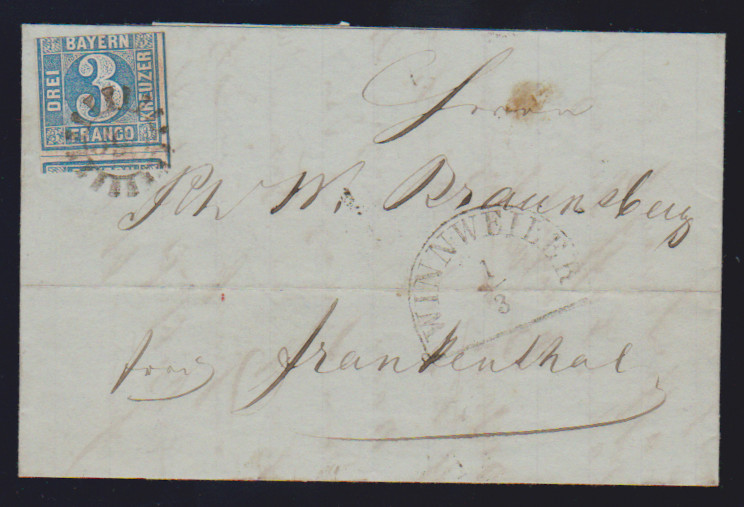 BAYERN
DREI
3
KREUZER
FRANCO
Herrn
W. Braunsberg
WINNWEILER
1
3
frei Frankenthal.